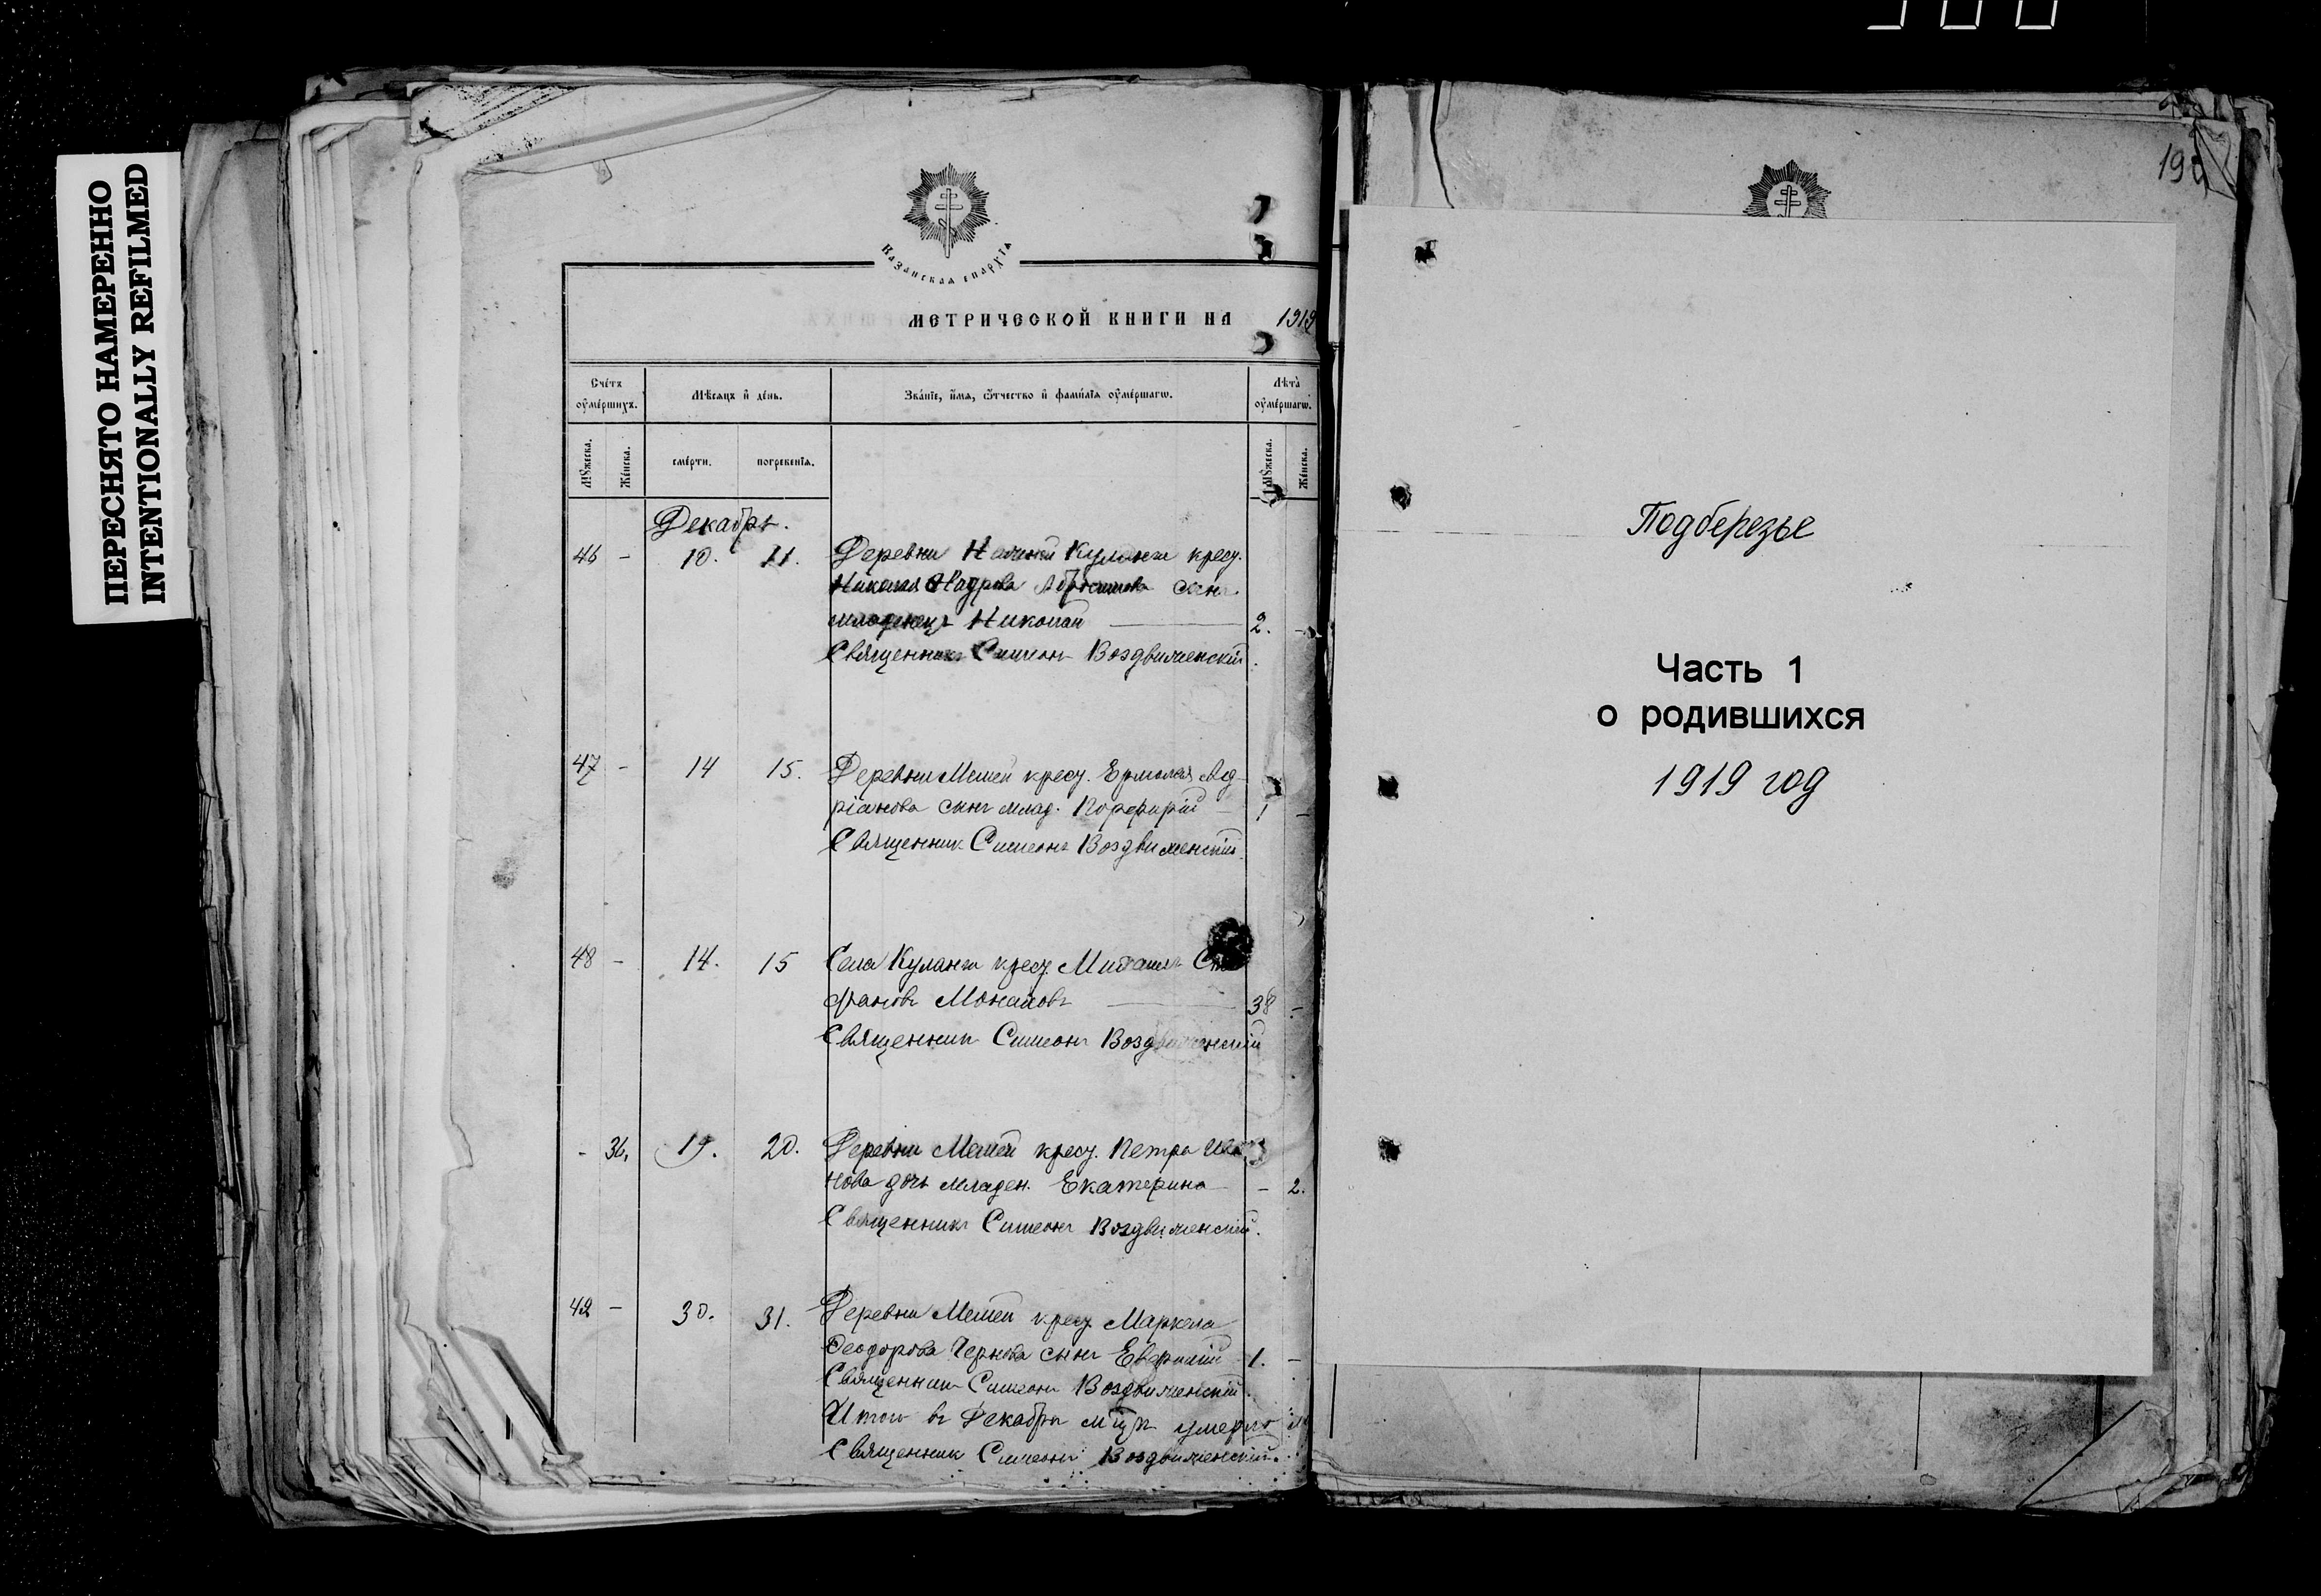 ПЕРЕСНЯТО НАМЕРЕННО
INTENTIONALLY REFILMED
Казанская епархїѧ
МЕТРИЧЕСКОЙ КНИГИ НА 1919
Счетъ оумершихъ.
Мѣсяцъ и день.
Званїе, имя, ѿчество и фамилїя оумершагѡ.
Лѣта оумершагѡ.
Мꙋжеска.
Женска.
смерти.
погребенїя.
Мꙋжеска.
Женска.
Декабрь.
46 - 10. 11. Деревни Куланги крест.
Николая сынъ
младенецъ Николай 2. -
Священникъ Симеонъ Воздвиженскій.
47 - 14 15. Деревни Мешей крест. Ермолая Ад-
ріанова сынъ млад. Порфирій 1 -
Священникъ Симеонъ Воздвиженскій.
48 - 14. 15 Села Куланги крест. Михаилъ Сте
фановъ 38 -
Священникъ Симеонъ Воздвиженскій
- 36. 19. 20. Деревни Мешей крест. Петра Ива
нова дочь младен. Екатерина - 2.
Священникъ Симеонъ Воздвиженскій.
49 - 30. 31. Деревни Мешей крест. Маркела
Феодорова Чернова сынъ 1. -
Священникъ Симеонъ Воздвиженскій.
Итого въ Декабрѣ м-цѣ умерло
Священникъ Симеонъ Воздвиженскій.
Подберезье
Часть 1
о родившихся
1919 год